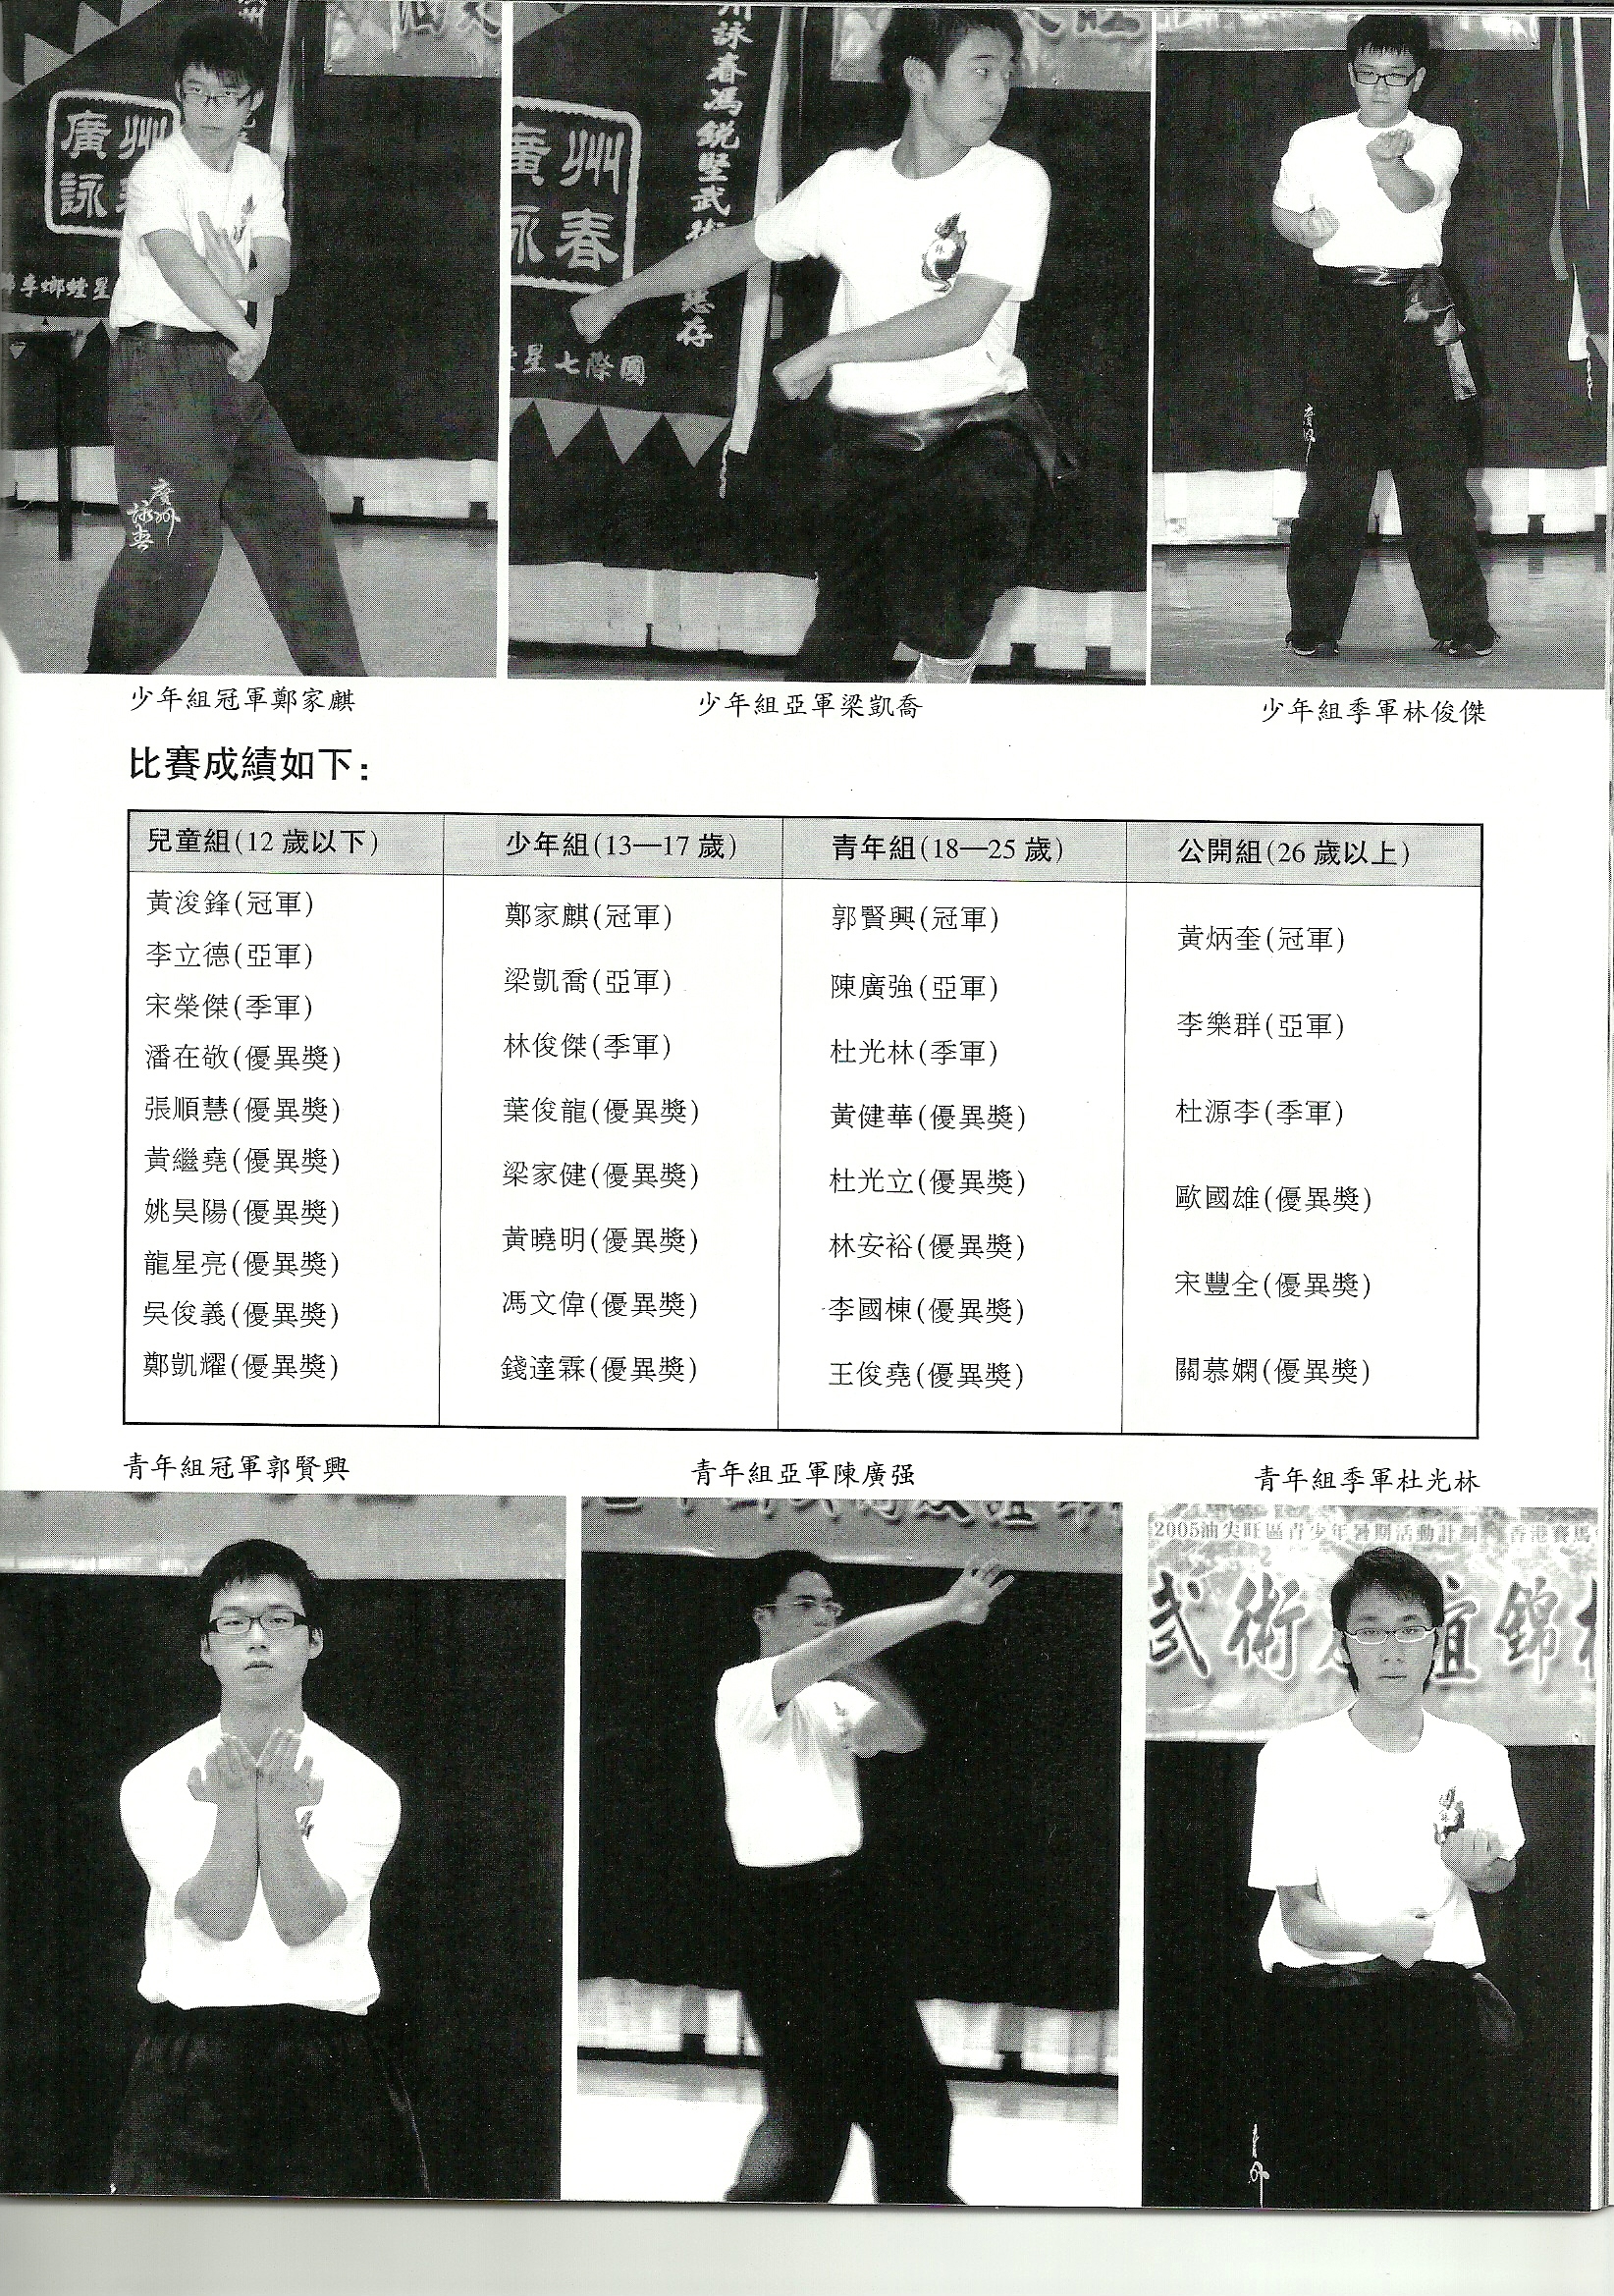 廣州
詠
廣州
詠春
州詠春馮銳堅武術
慈存
星七際國
廣州
詠春
少年組冠軍鄭家麒
少年組亞軍梁凱喬
少年組季軍林俊傑
比賽成績如下:
兒童組(12 歲以下)
少年組(13—17 歲)
青年組(18—25 歲)
公開組(26 歲以上)
黃浚鋒(冠軍)
李立德(亞軍)
宋榮傑(季軍)
潘在敬(優異獎)
張順慧(優異獎)
黃繼堯(優異獎)
姚昊陽(優異獎)
龍星亮(優異獎)
吳俊義(優異獎)
鄭凱耀(優異獎)
鄭家麒(冠軍)
梁凱喬(亞軍)
林俊傑(季軍)
葉俊龍(優異獎)
梁家健(優異獎)
黃曉明(優異獎)
馮文偉(優異獎)
錢達霖(優異獎)
郭賢興(冠軍)
陳廣強(亞軍)
杜光林(季軍)
黃健華(優異獎)
杜光立(優異獎)
林安裕(優異獎)
李國棟(優異獎)
王俊堯(優異獎)
黃炳奎(冠軍)
李樂群(亞軍)
杜源李(季軍)
歐國雄(優異獎)
宋豐全(優異獎)
關慕嫻(優異獎)
青年組冠軍郭賢興
青年組亞軍陳廣强
青年組季軍杜光林
2005油尖旺區青少年暑期活動計劃 香港賽馬
武術友誼錦